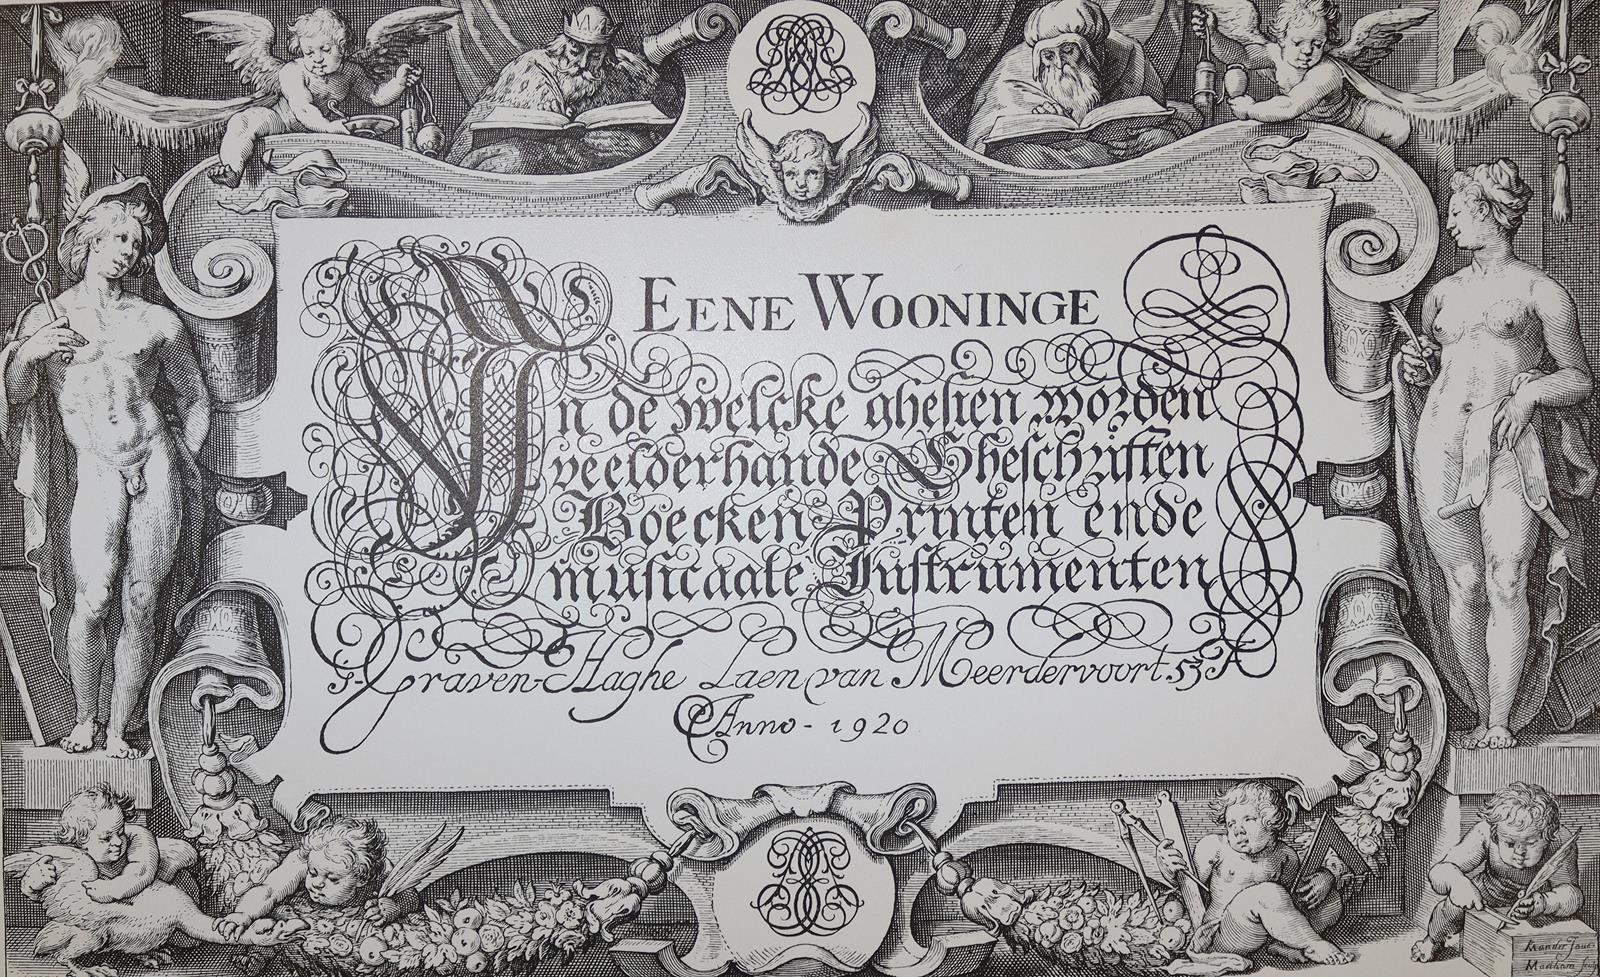 EENE WOONINGE
In de welcke ghesien worden
veelderhande Gheschriften
Boecken Printen ende
musicaale Instrumenten
s-Graven-Haghe Laen van Meerdervoort. 53 A
Anno - 1920